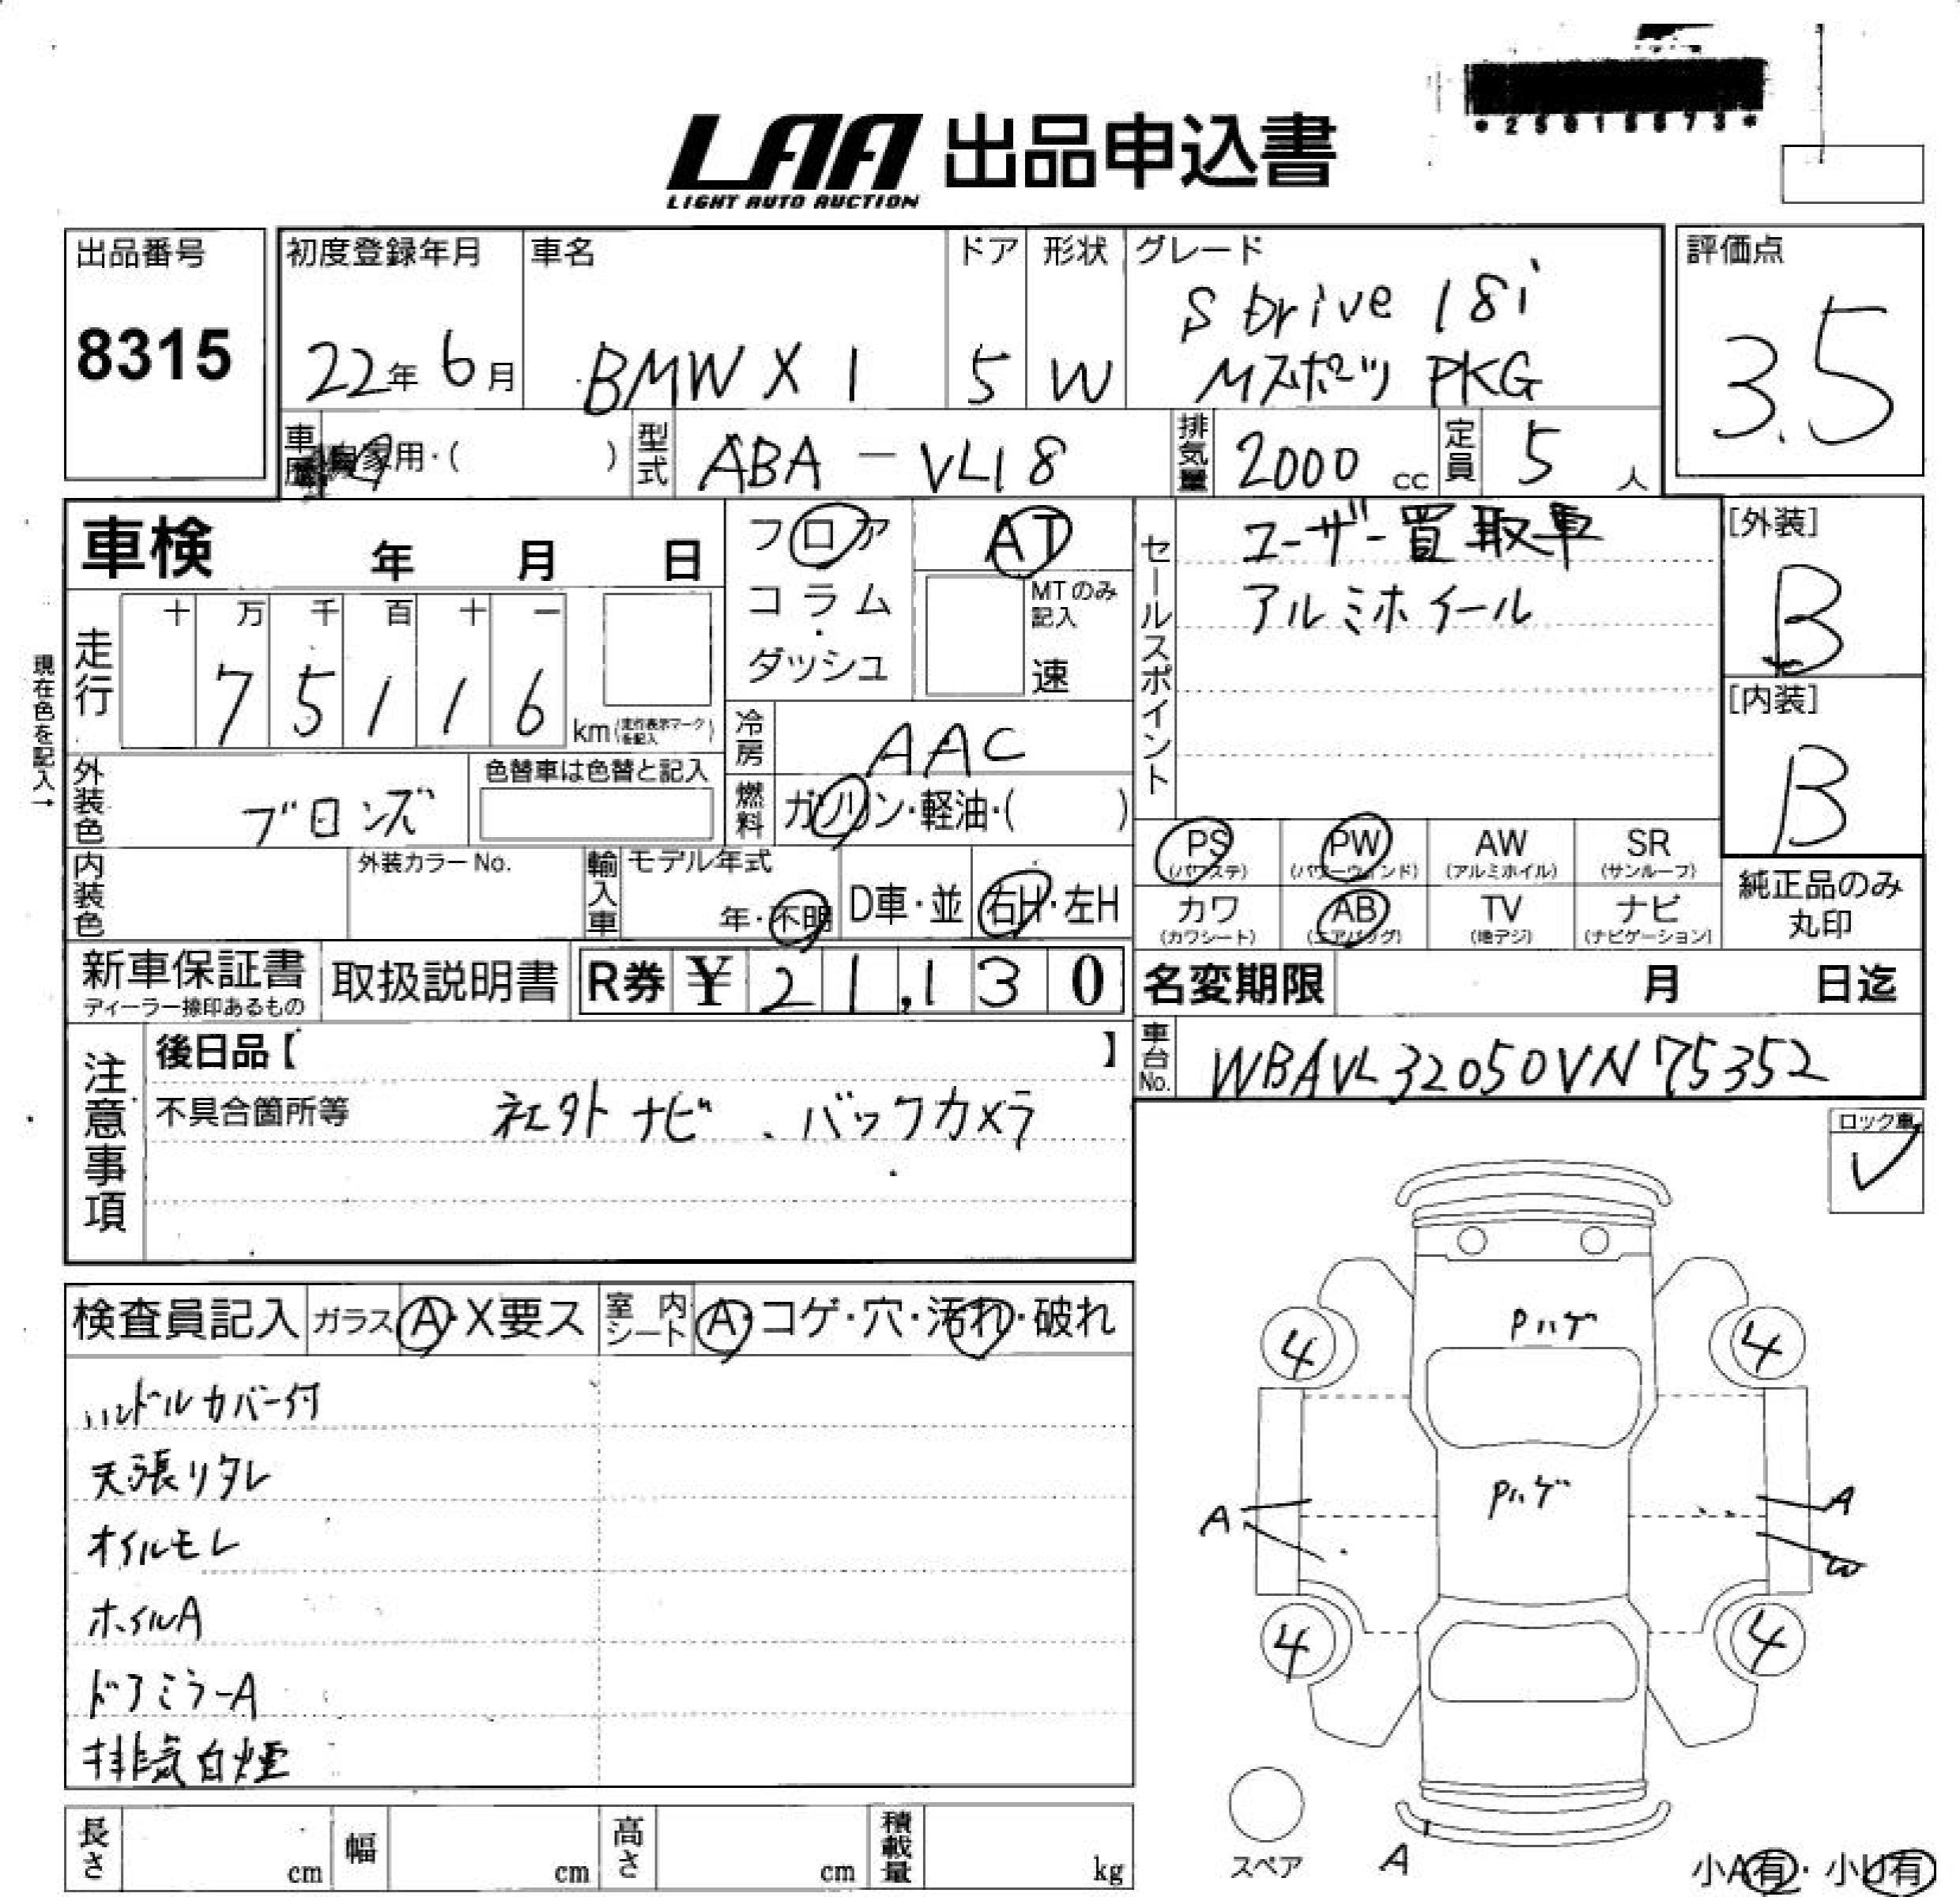 LAA 出品申込書
LIGHT AUTO AUCTION
出品番号
8315
初度登録年月
22年 6月
車名
BMW X1
ドア
5
形状
W
グレード
S Drive 18i
Mスポーツ PKG
評価点
3.5
車歴
自家用・( )
型式
ABA-VL18
排気量
2000 cc
定員
5 人
車検 年 月 日
フロア
コラム
・
ダッシュ
AT
MTのみ
記入
速
セールスポイント
ユーザー買取車
アルミホイール
[外装]
B
[内装]
B
現在色を記入→
走行
十 万 千 百 十 一
7 5 1 1 6
km(走行表示マークを記入)
冷房
AAC
外装色
ブロンズ
色替車は色替と記入
燃料
ガソリン・軽油・( )
PS
(パワステ)
PW
(パワーウインド)
AW
(アルミホイル)
SR
(サンルーフ)
内装色
外装カラーNo.
輸入車
モデル年式
年・不明
D車・並
右H・左H
カワ
(カワシート)
AB
(エアバッグ)
TV
(地デジ)
ナビ
(ナビゲーション)
純正品のみ
丸印
新車保証書
ディーラー捺印あるもの
取扱説明書
R券 ¥ 21,130
名変期限 月 日迄
車台No.
WBAVL32050VN75352
注意事項
後日品【 】
不具合箇所等
社外ナビ、バックカメラ
ロック車
✓
検査員記入
ガラス A・X要ス
室内シート A・コゲ・穴・汚れ・破れ
ハンドルカバー付
天張リタレ
オイルモレ
ホイルA
ドアミラーA
排気白煙
Pハゲ
4 4
Pハゲ
A
A
W
4 4
スペア
A
小A有・小U有
長さ cm
幅 cm
高さ cm
積載量 kg